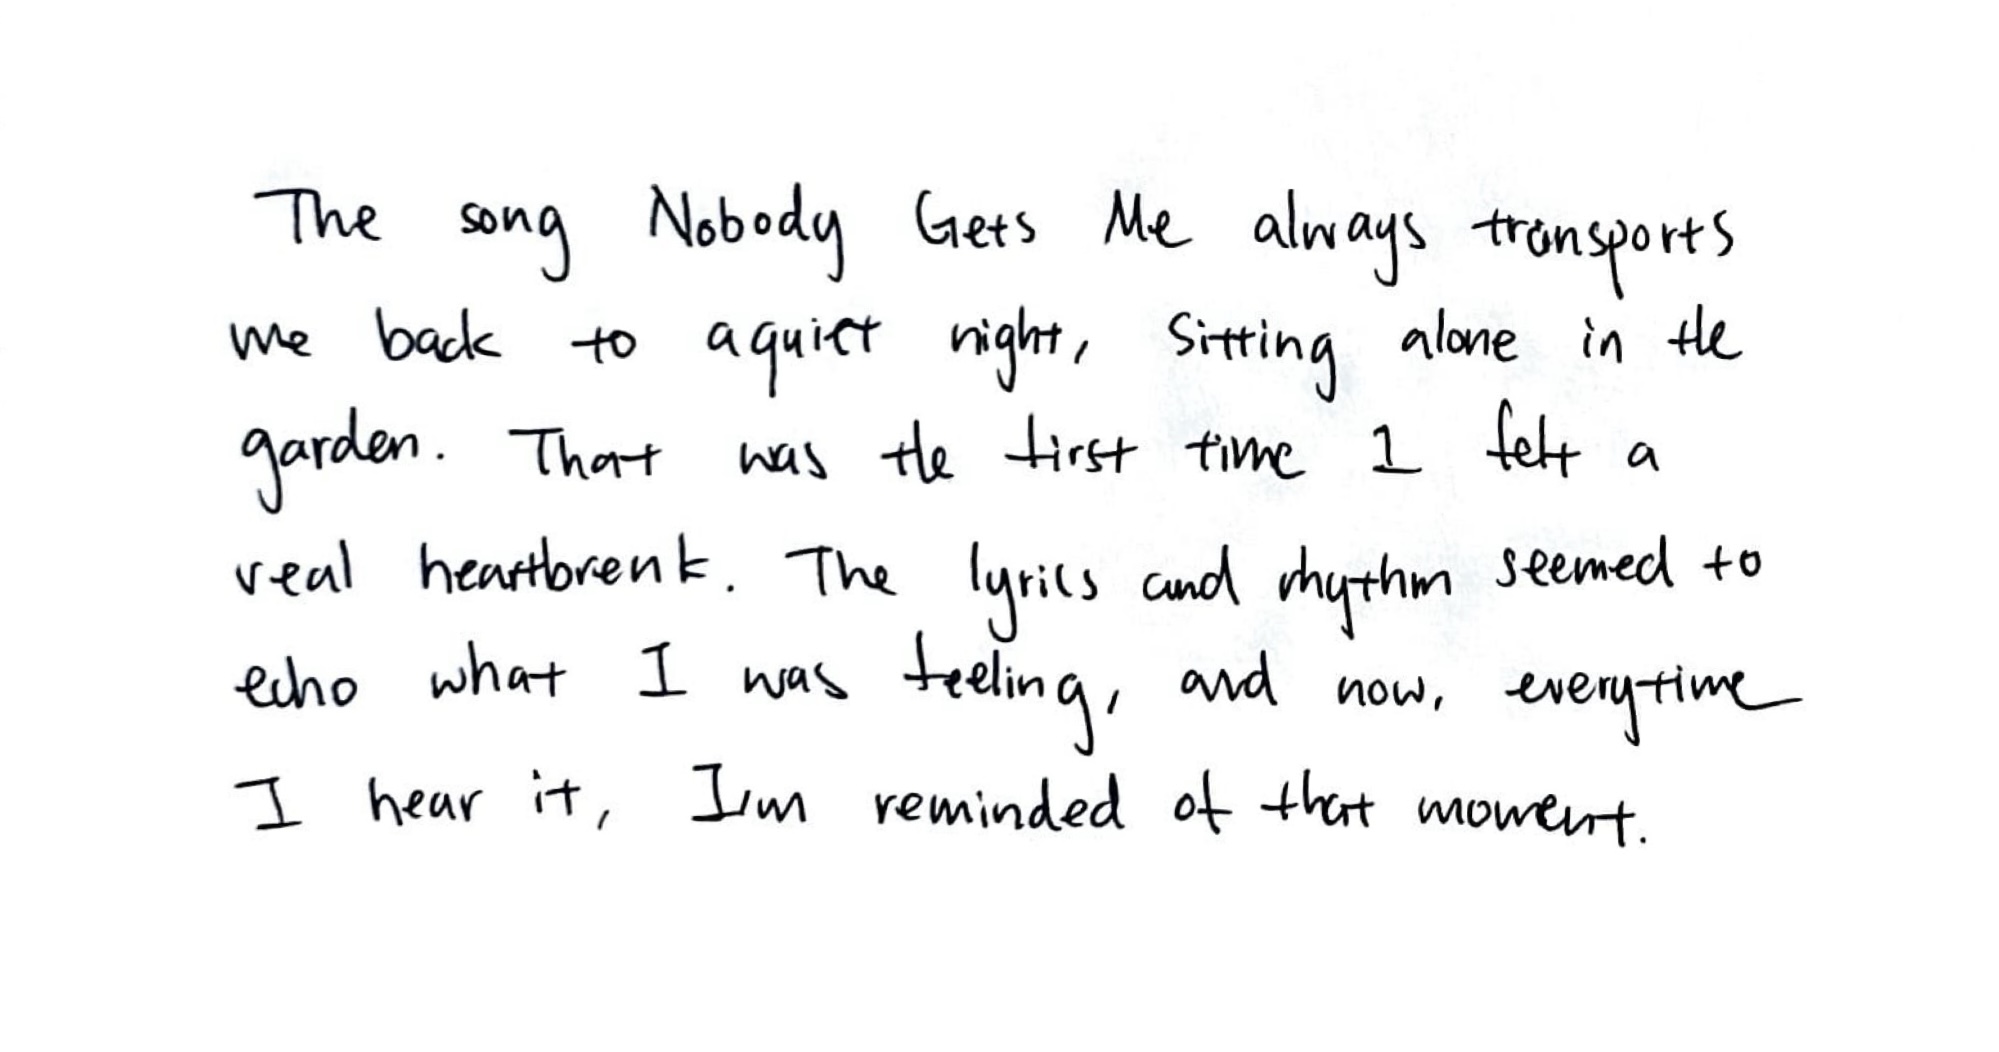 The song Nobody Gets Me always transports
me back to a quiet night, sitting alone in the
garden. That was the first time I felt a
real heartbreak. The lyrics and rhythm seemed to
echo what I was feeling, and now, everytime
I hear it, I'm reminded of that moment.